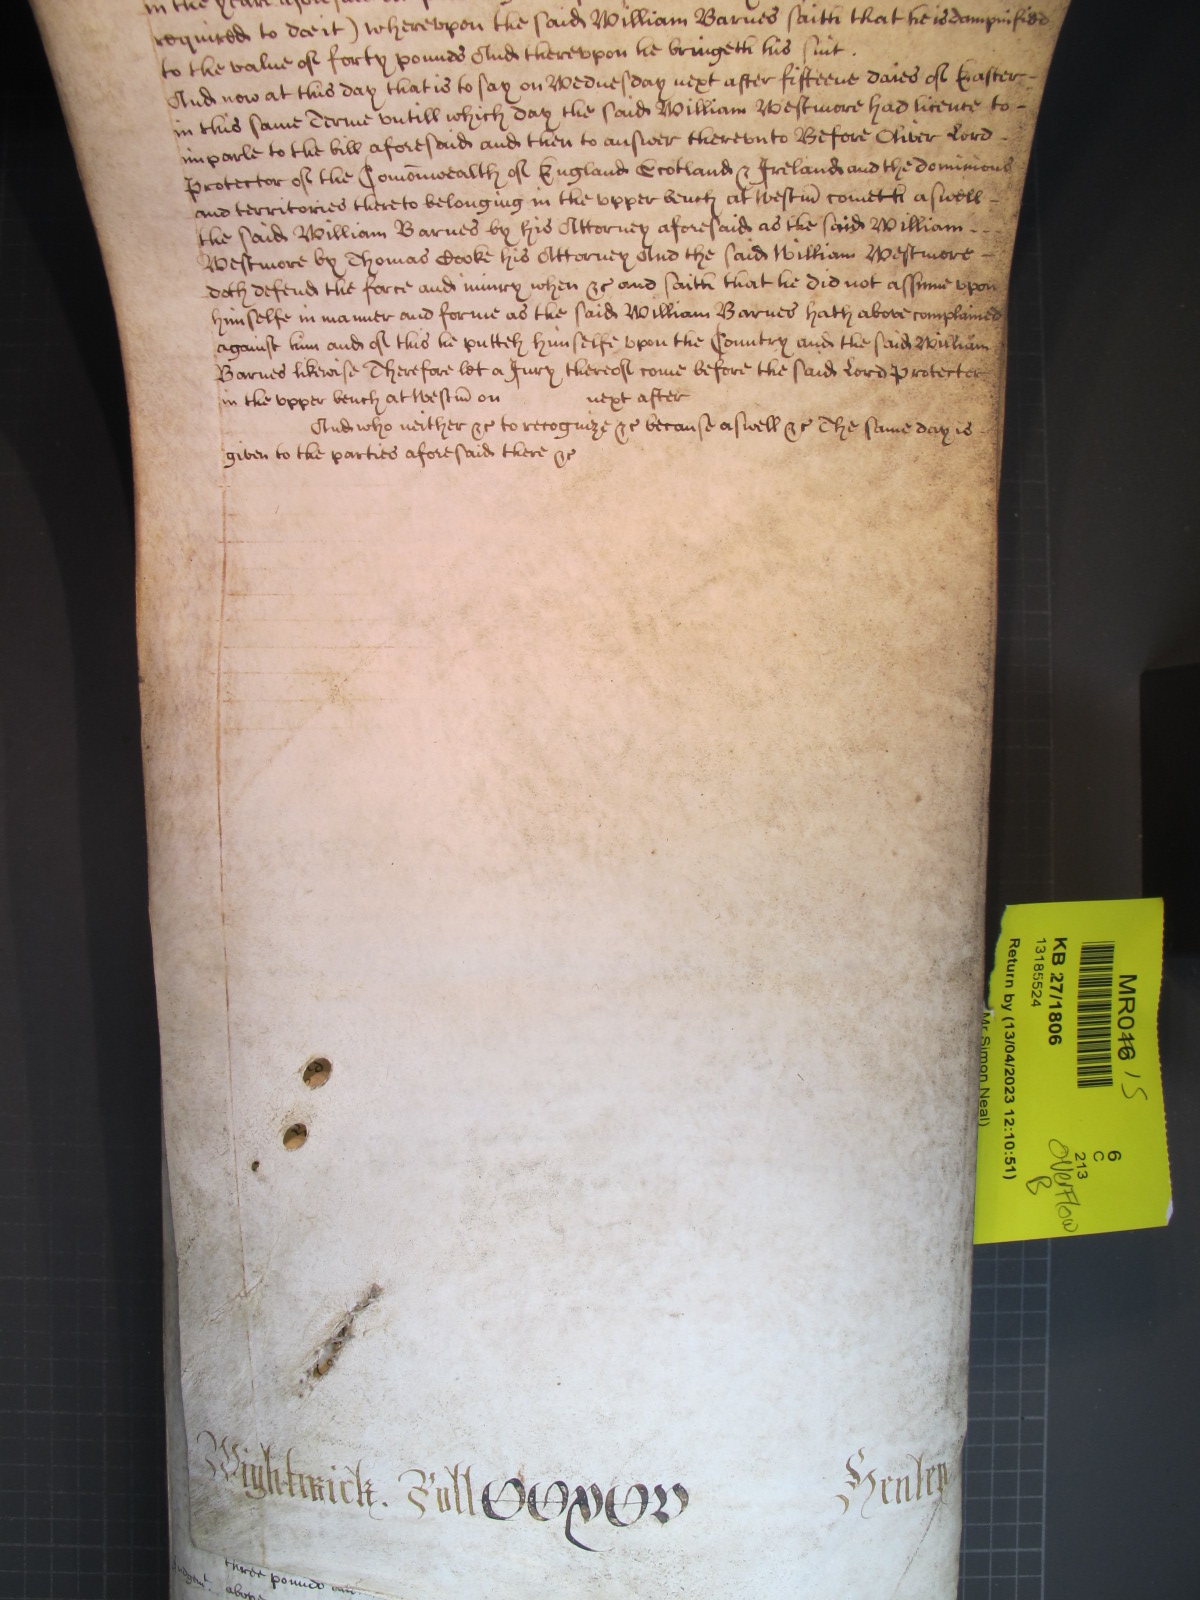 in the yeare aforesaid
required to doe it) wherevpon the said William Barnes saith that he is dampnified
to the value of forty pounds And therevpon he bringeth his suit.
And now at this day that is to say on Wednesday next after fifteene daies of Easter
in this same Terme vntill which day the said William Westmore had licence to
imparle to the bill aforesaid and then to answer therevnto Before Oliver Lord
Protector of the Comõnwealth of England Scotland & Ireland and the dominions
and territories thereto belonging in the vpper bench at Westm̃ cometh aswell
the said William Barnes by his Attorney aforesaid as the said William
Westmore by Thomas Cooke his Attorney And the said William Westmore
doth defend the force and iniury when &c and saith that he did not assume vpon
himselfe in manner and forme as the said William Barnes hath above complained
against him and of this he putteh himselfe vpon the Country and the said William
Barnes likewise Therefore let a Jury thereof come before the said Lord Protector
in the vpper bench at Westm̃ on next after
And who neither &c to recognize &c because aswell &c The same day is
given to the parties aforesaid there &c
Wightwick. Roll Henley
three pound
above
MR046 / 5
KB 27/1806
13185524
Return by (13/04/2023 12:10:51)
Mr Simon Neal)
6
C
213
Overflow
B